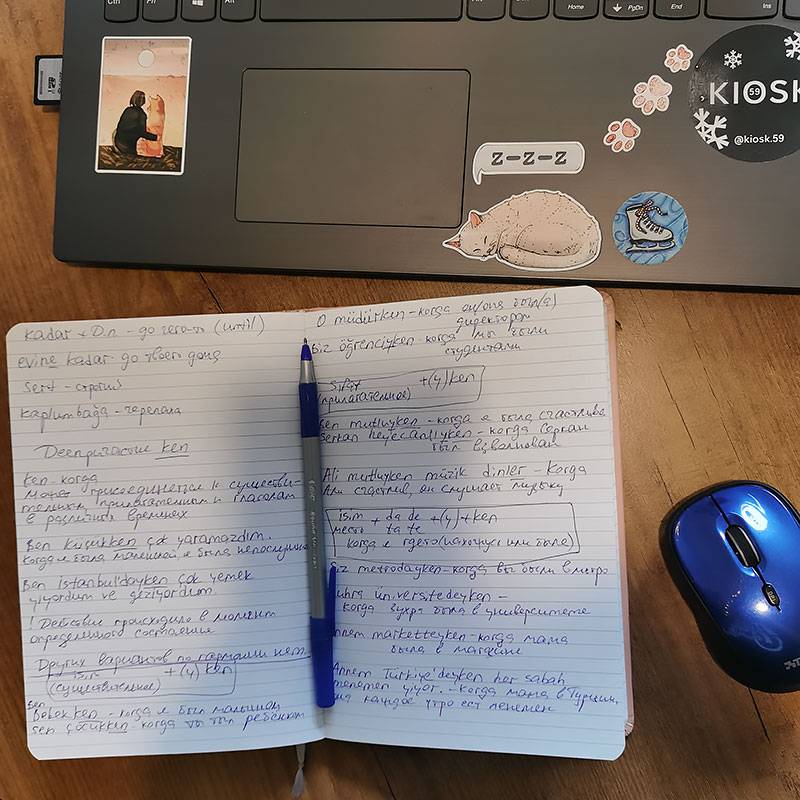 Ctrl
Fn
Alt
Home
PgDn
End
Ins
KIOSK
59
@kiosk.59
z-z-z
kadar + D.п - до чего-то (until)
evine kadar - до твоего дома
sert - строгий
kaplumbağa - черепаха
Деепричастие ken
ken - когда
может присоединяться к существи-
тельным, прилагательным и глаголам
в различных временах
Ben küçükken çok yaramazdım.
Когда я была маленькой, я была непослушна
Ben İstanbul'dayken çok yemek
yiyordum ve geziyordum.
! Действие происходило в момент
определенного состояния
Других вариантов по гармонии нет.
isim +(y)ken
(существительное)
Ben
Bebekken - когда я был малышом
sen çocukken - когда ты был ребенком
O müdürken - когда он/она был(а)
директором
Biz öğrenciyken - когда мы были
студентами
sıfat +(y)ken
(прилагательное)
Ben mutluyken - когда я была счастлива
Serkan heyecanlıyken - когда Серкан
был взволнован
Ali mutluyken müzik dinler - Когда
Али счастлив, он слушает музыку
isim + da de +(y)+ken
место ta te
когда я где-то (нахожусь или была)
Siz metrodayken - когда вы были в метро
Zuhra üniversitedeyken -
когда Зухра была в университете
Annem marketteyken - когда мама
была в магазине
Annem Türkiye'deyken her sabah
menemen yiyor. - когда мама в Турции,
она каждое утро ест менемен